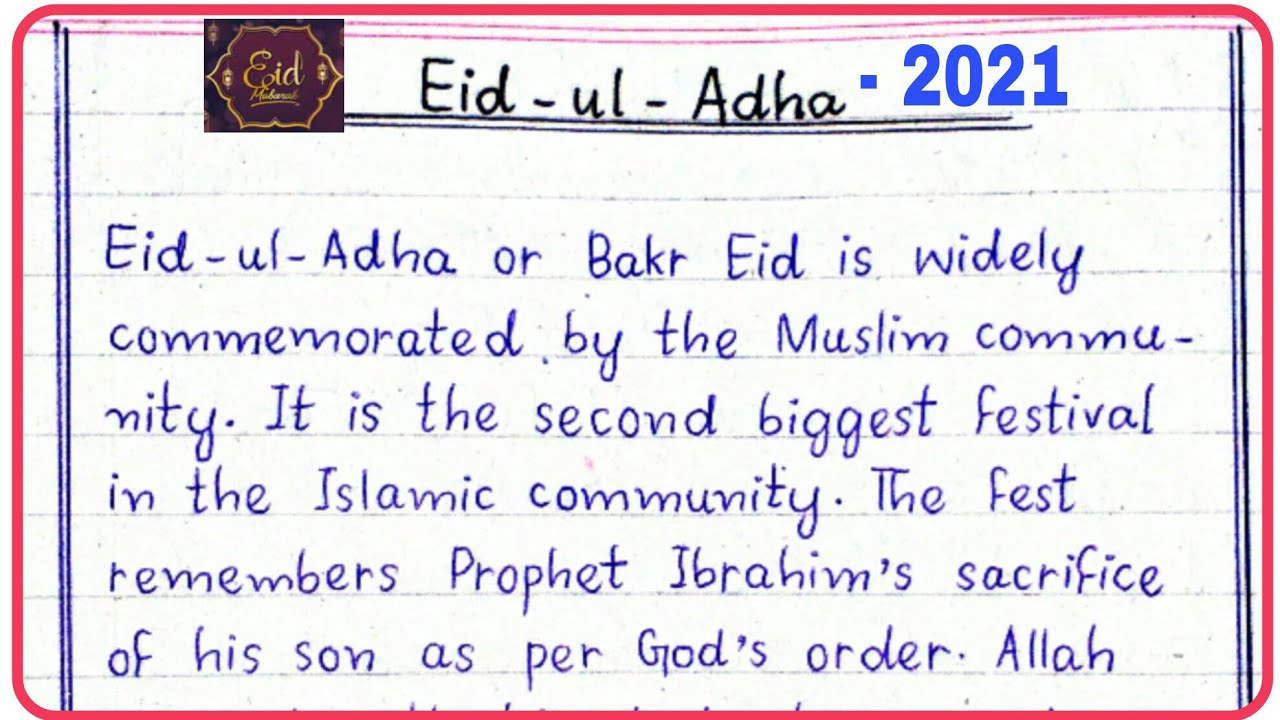 Eid Mubarak
Eid-ul-Adha - 2021
Eid-ul-Adha or Bakr Eid is widely
commemorated by the Muslim commu-
nity. It is the second biggest festival
in the Islamic community. The fest
remembers Prophet Ibrahim's sacrifice
of his son as per God's order. Allah